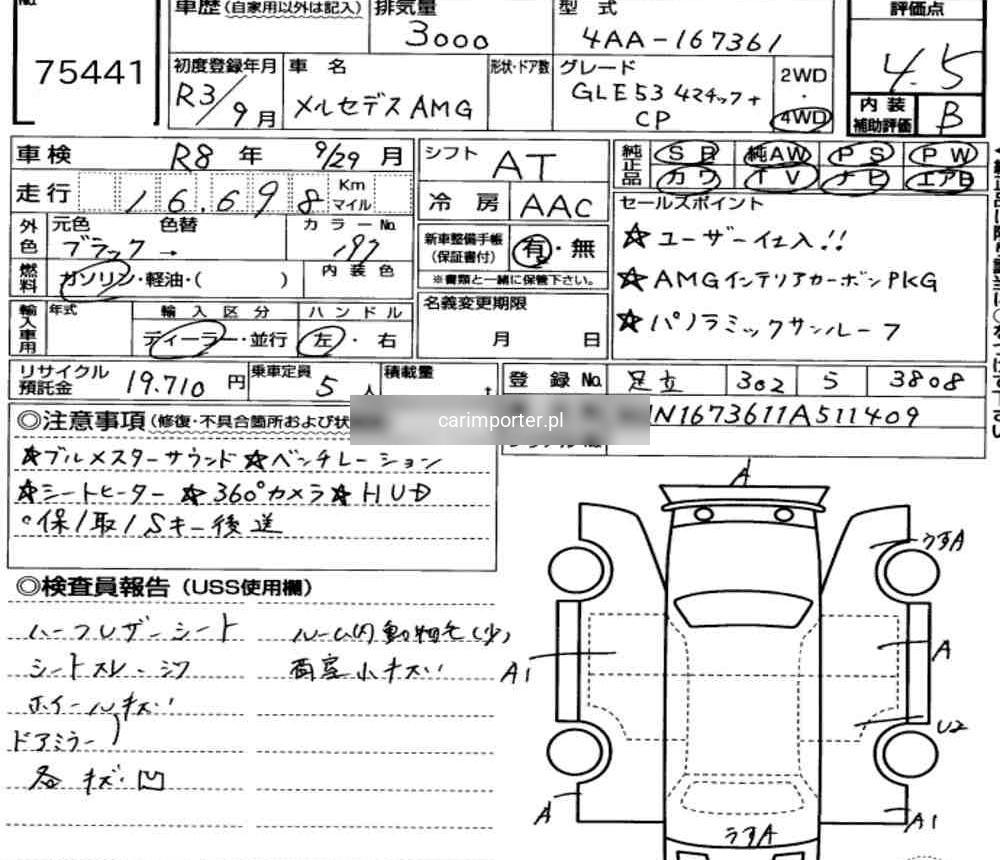 No.
75441
車歴（自家用以外は記入）
排気量
3000
型式
4AA-167361
評価点
4.5
初度登録年月
R3/9月
車名
メルセデスAMG
形状・ドア数
グレード
GLE53 4マチック+
CP
2WD
・
4WD
内装
補助評価
B
車検 R8年 9/29月
シフト AT
純正品
SR 純AW PS PW
カワ TV ナビ エアB
走行 16.698 Km マイル
冷房 AAC
セールスポイント
☆ユーザー仕入!!
☆AMGインテリアカーボンPKG
☆パノラミックサンルーフ
外色
元色 色替
ブラック→
カラーNo.
197
新車整備手帳
（保証書付）
有・無
※書類と一緒に保管下さい。
燃料
ガソリン・軽油・（ ）
内装色
名義変更期限
月 日
輸入車用
年式
輸入区分
ディーラー・並行
ハンドル
左・右
リサイクル
預託金
19.710円
乗車定員
5人
積載量
t
登録No. 足立 302 5 3808
1N1673611A511409
carimporter.pl
◎注意事項（修復・不具合箇所および状
☆ブルメスターサウンド☆ベンチレーション
☆シートヒーター ☆360°カメラ☆HUD
°保/取/Sキー後送
◎検査員報告（USS使用欄）
ハーフレザーシート
シートスレ・シワ
ホイールキズ
ドアミラー
各キズ・凹
ルーム内動物毛(少)
両窓小キズ
A
うすA
A1
A
U2
A
うすA
A1